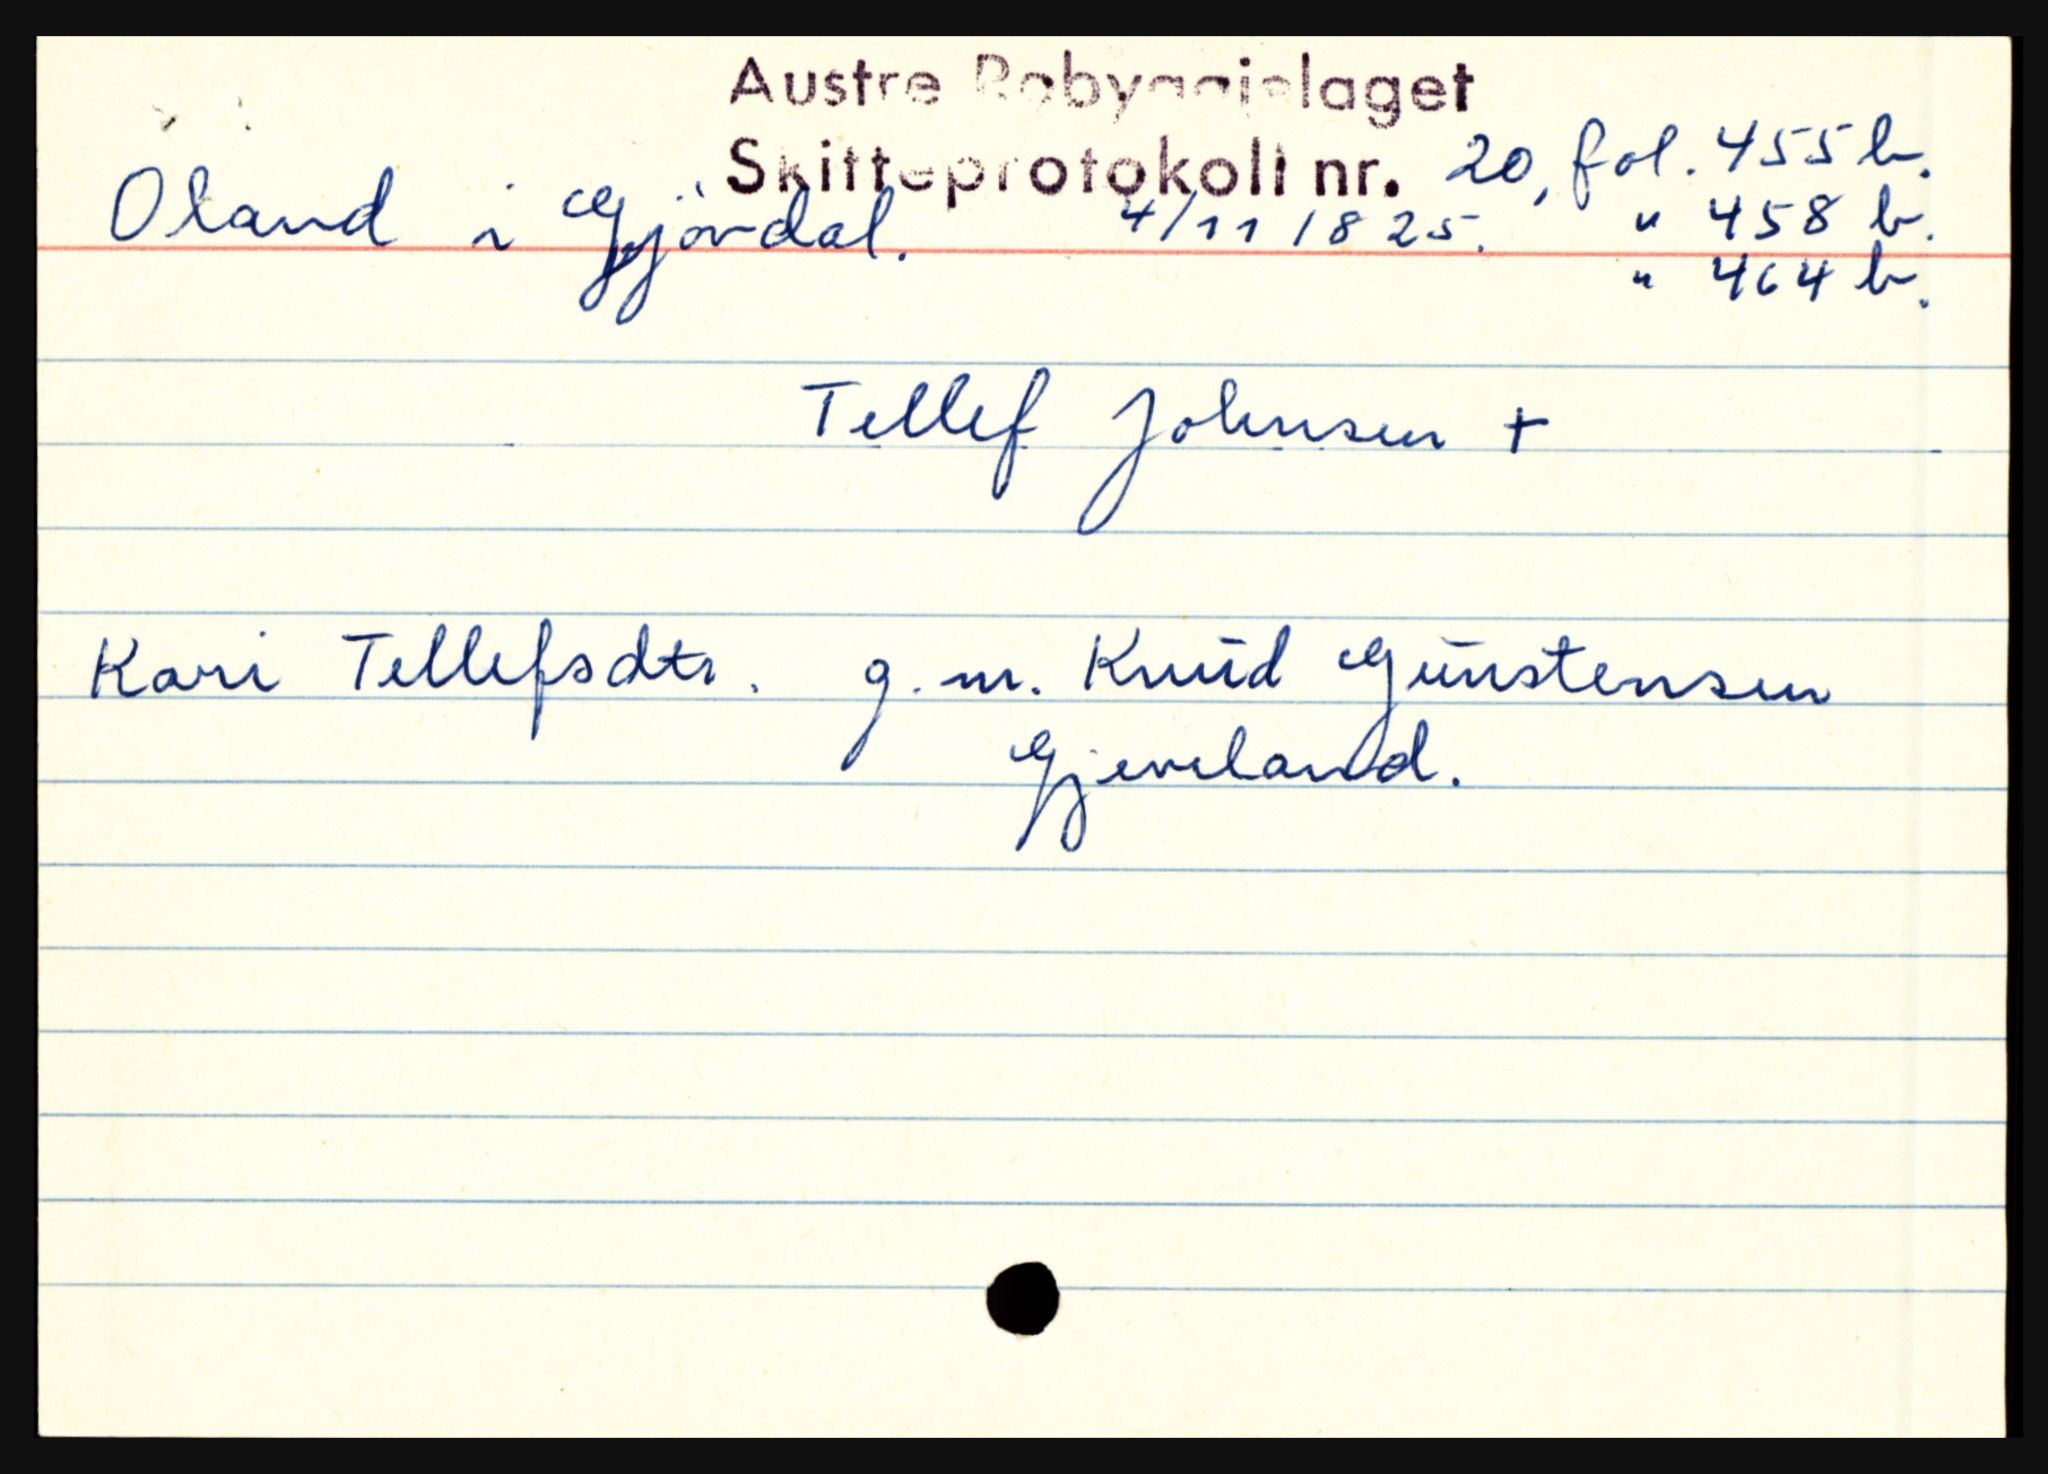 Austre Robyggjelaget
Skifteprotokoll nr. 20, fol. 455 b.
Oland i Gjövdal. 4/11 1825. " 458 b.
" 464 b.
Tellef Johnsen +
Kari Tellefsdtr. g. m. Knud Gunstensen
Gjeveland.